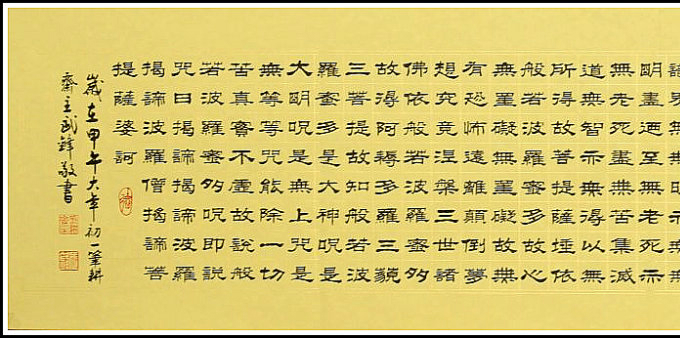 明盡迺至無老死亦
無老死盡無苦集滅
道無智亦無得以無
所得故菩提薩埵依
般若波羅蜜多故心
無罣礙無罣礙故無
有恐怖遠離顛倒夢
想究竟涅槃三世諸
佛依般若波羅蜜多
故得阿耨多羅三藐
三菩提故知般若波
羅蜜多是大神咒是
大明咒是無上咒是
無等等咒能除一切
苦真實不虛故說般
若波羅蜜多咒即說
咒曰揭諦揭諦波羅
揭諦波羅僧揭諦菩
提薩婆訶
歲在甲午大年初一筆耕
齋主武鋒敬書